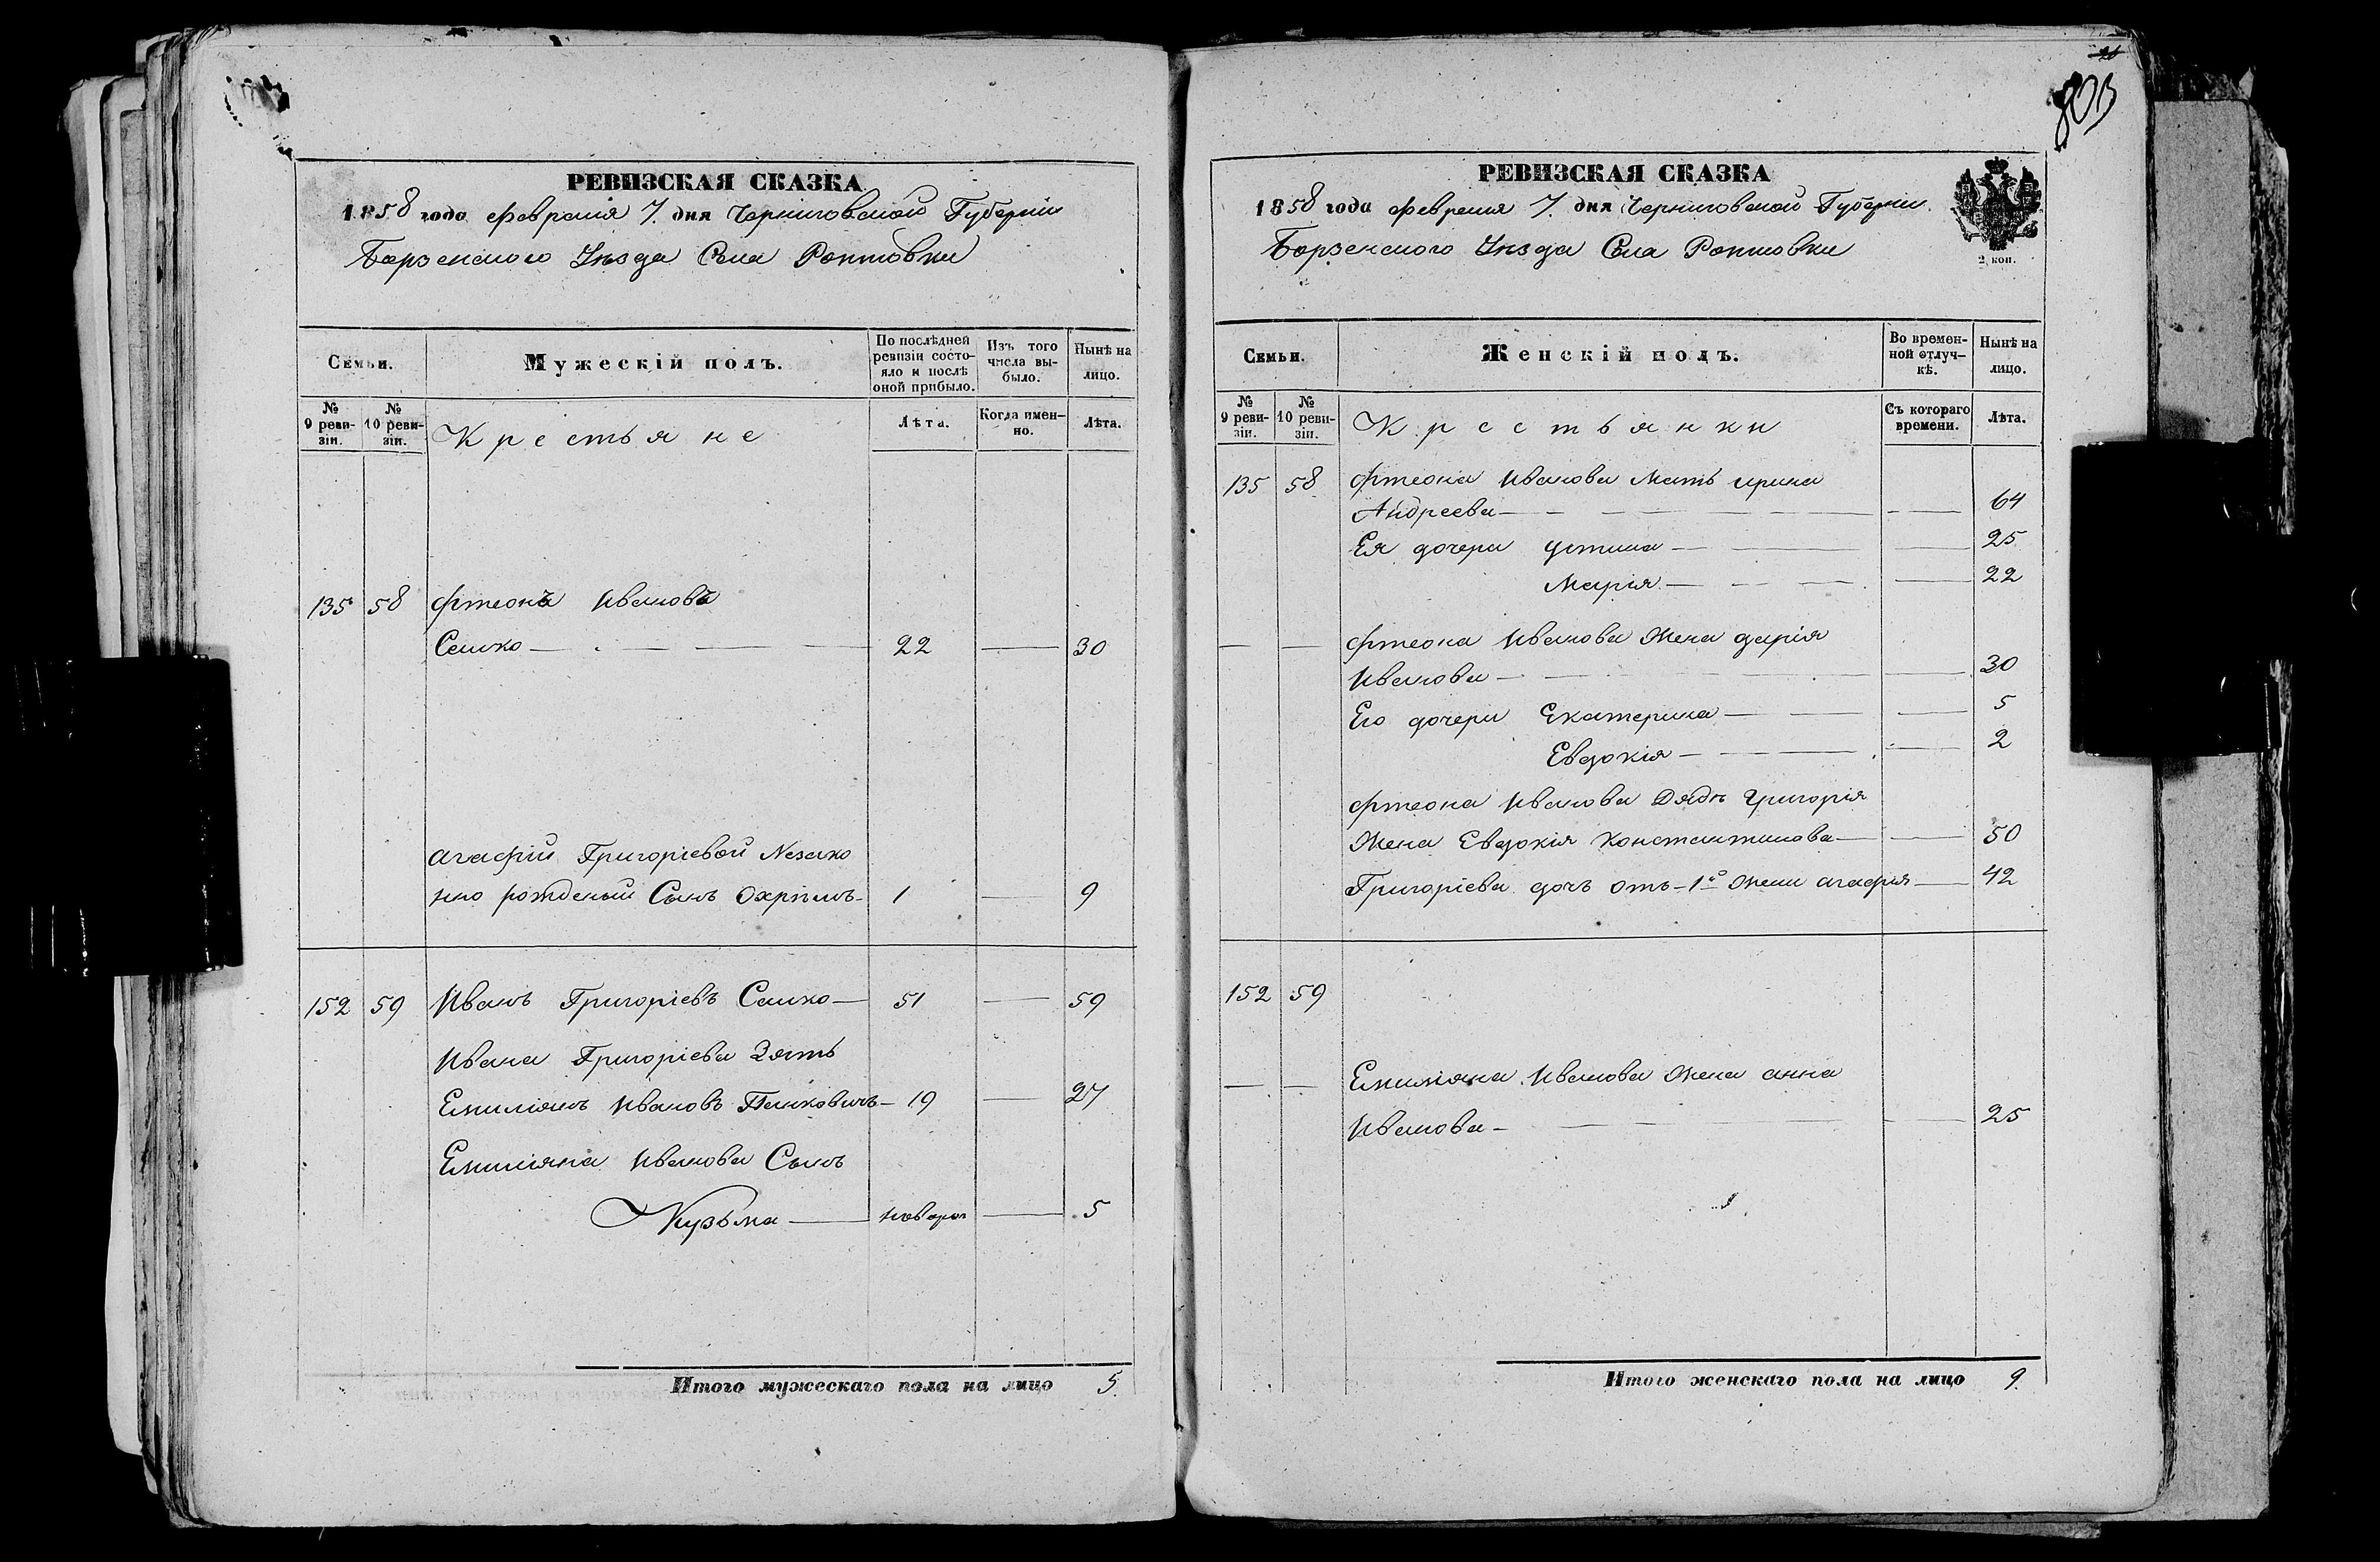 РЕВИЗСКАЯ СКАЗКА
1858 года февраля 7. дня Черниговской Губернии
Борзенского Уѣзда Села
Семьи.
Мужескій полъ.
По послѣдней ревизіи состояло и послѣ оной прибыло.
Изъ того числа выбыло.
Нынѣ на лицо.
№ 9 ревизіи.
№ 10 ревизіи.
Крестьяне
Лѣта.
Когда именно.
Лѣта.
135 58 Ивановъ
Сашко 22 30
Агафіи Григоріевой Незако
но рожденый Сынъ Охрімъ 1 9
152 59 Иванъ Григоріевъ Сашко 51 59
Ивана Григоріева Зять
Емиліянъ Ивановъ 19 27
Емиліяна Иванова Сынъ
Кузьма новорож 5
Итого мужескаго пола на лицо 5
20
803
РЕВИЗСКАЯ СКАЗКА
1858 года февраля 7. дня Черниговской Губернии
Борзенского Уѣзда Села
2 коп.
Семьи.
Женскій полъ.
Во временной отлучкѣ.
Нынѣ на лицо.
№ 9 ревизіи.
№ 10 ревизіи.
Крестьянки
Съ котораго времени.
Лѣта.
135 58 Иванова Мать Ирина
Андреева 64
Ея дочери Устина 25
Марія 22
Иванова Жена Дарія
Иванова 30
Его дочери Екатерина 5
Евдокія 2
Иванова Дядѣ Григорія
Жена Евдокія Константинова 50
Григоріева дочъ отъ 1й Жени Агафія 42
152 59
Емиліяна Иванова Жена Анна
Иванова 25
Итого женскаго пола на лицо 9.